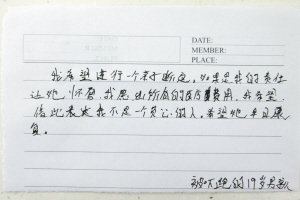 DATE:
MEMBER:
PLACE:
我希望进行一个亲子断定。如果是我的责任
让她怀孕,我愿出所有的医疗费用,我希望
借此表达我不是一个负心的人,希望她早日康
复。
被吓跑的19岁男孩